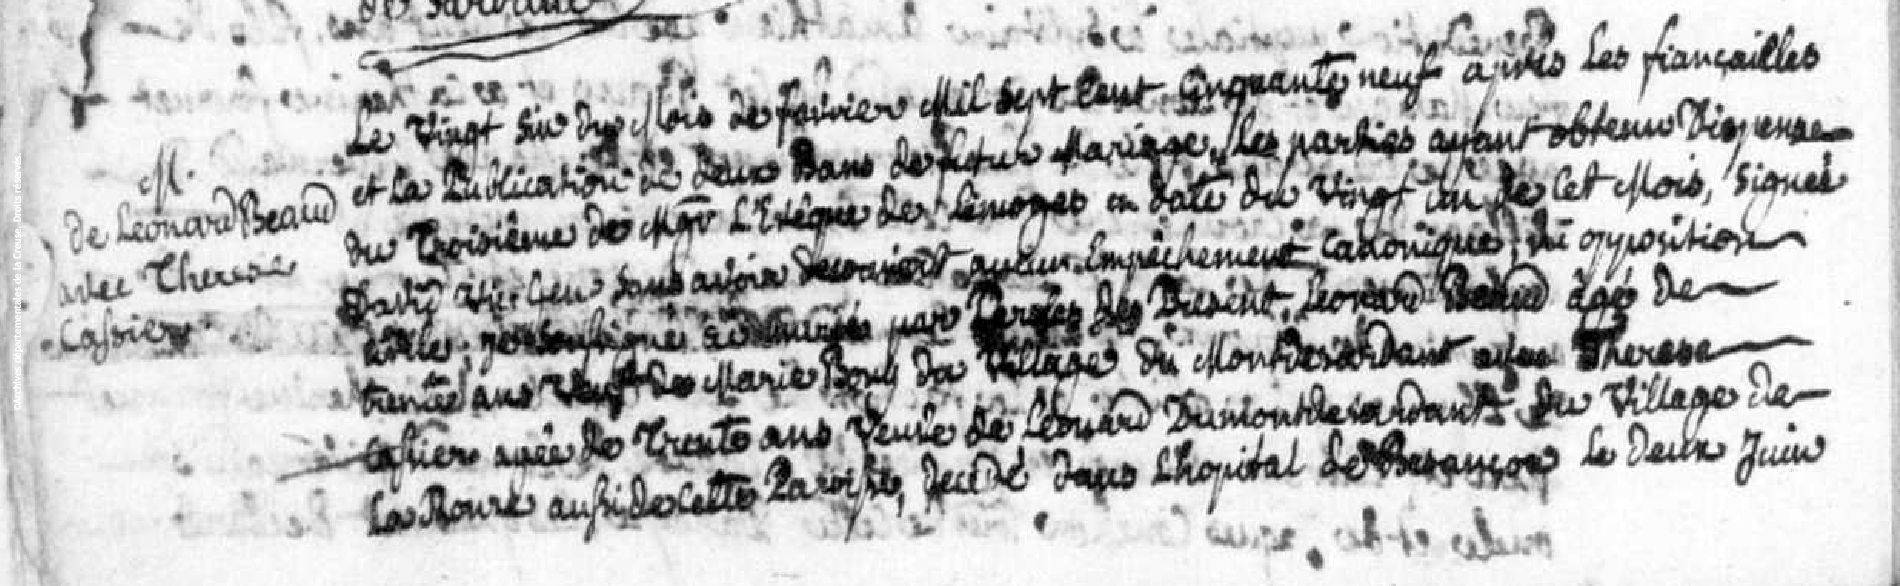 M.
de Leonard Beaud
avec Therese
Cassier
Le vingt six du Mois de fevrier Mil sept Cent Cinquante neuf après Les fiançailles
et La Publication de deux Bans de futur Mariage, Les parties ayant obtenu Dispense
du Troisième de Mgr L'Evêque de Limoges en date du vingt un de Cet Mois, signée
sans avoir decouvert aucun Empêchement Canonique, ni opposition
civille, je soussigné ai mariés par Paroles de Present, Leonard Beaud agé de
trente ans veuf de Marie Bouy du Village du Montdesardant avec Therese
Cassier agée de Trente ans Veuve de Léonard Dumontdesardant du Village de
La Roure aussi de Cette Paroisse, decedé dans L'hopital de Besançon Le deux Juin
©Archives départementales de la Creuse. Droits réservés.